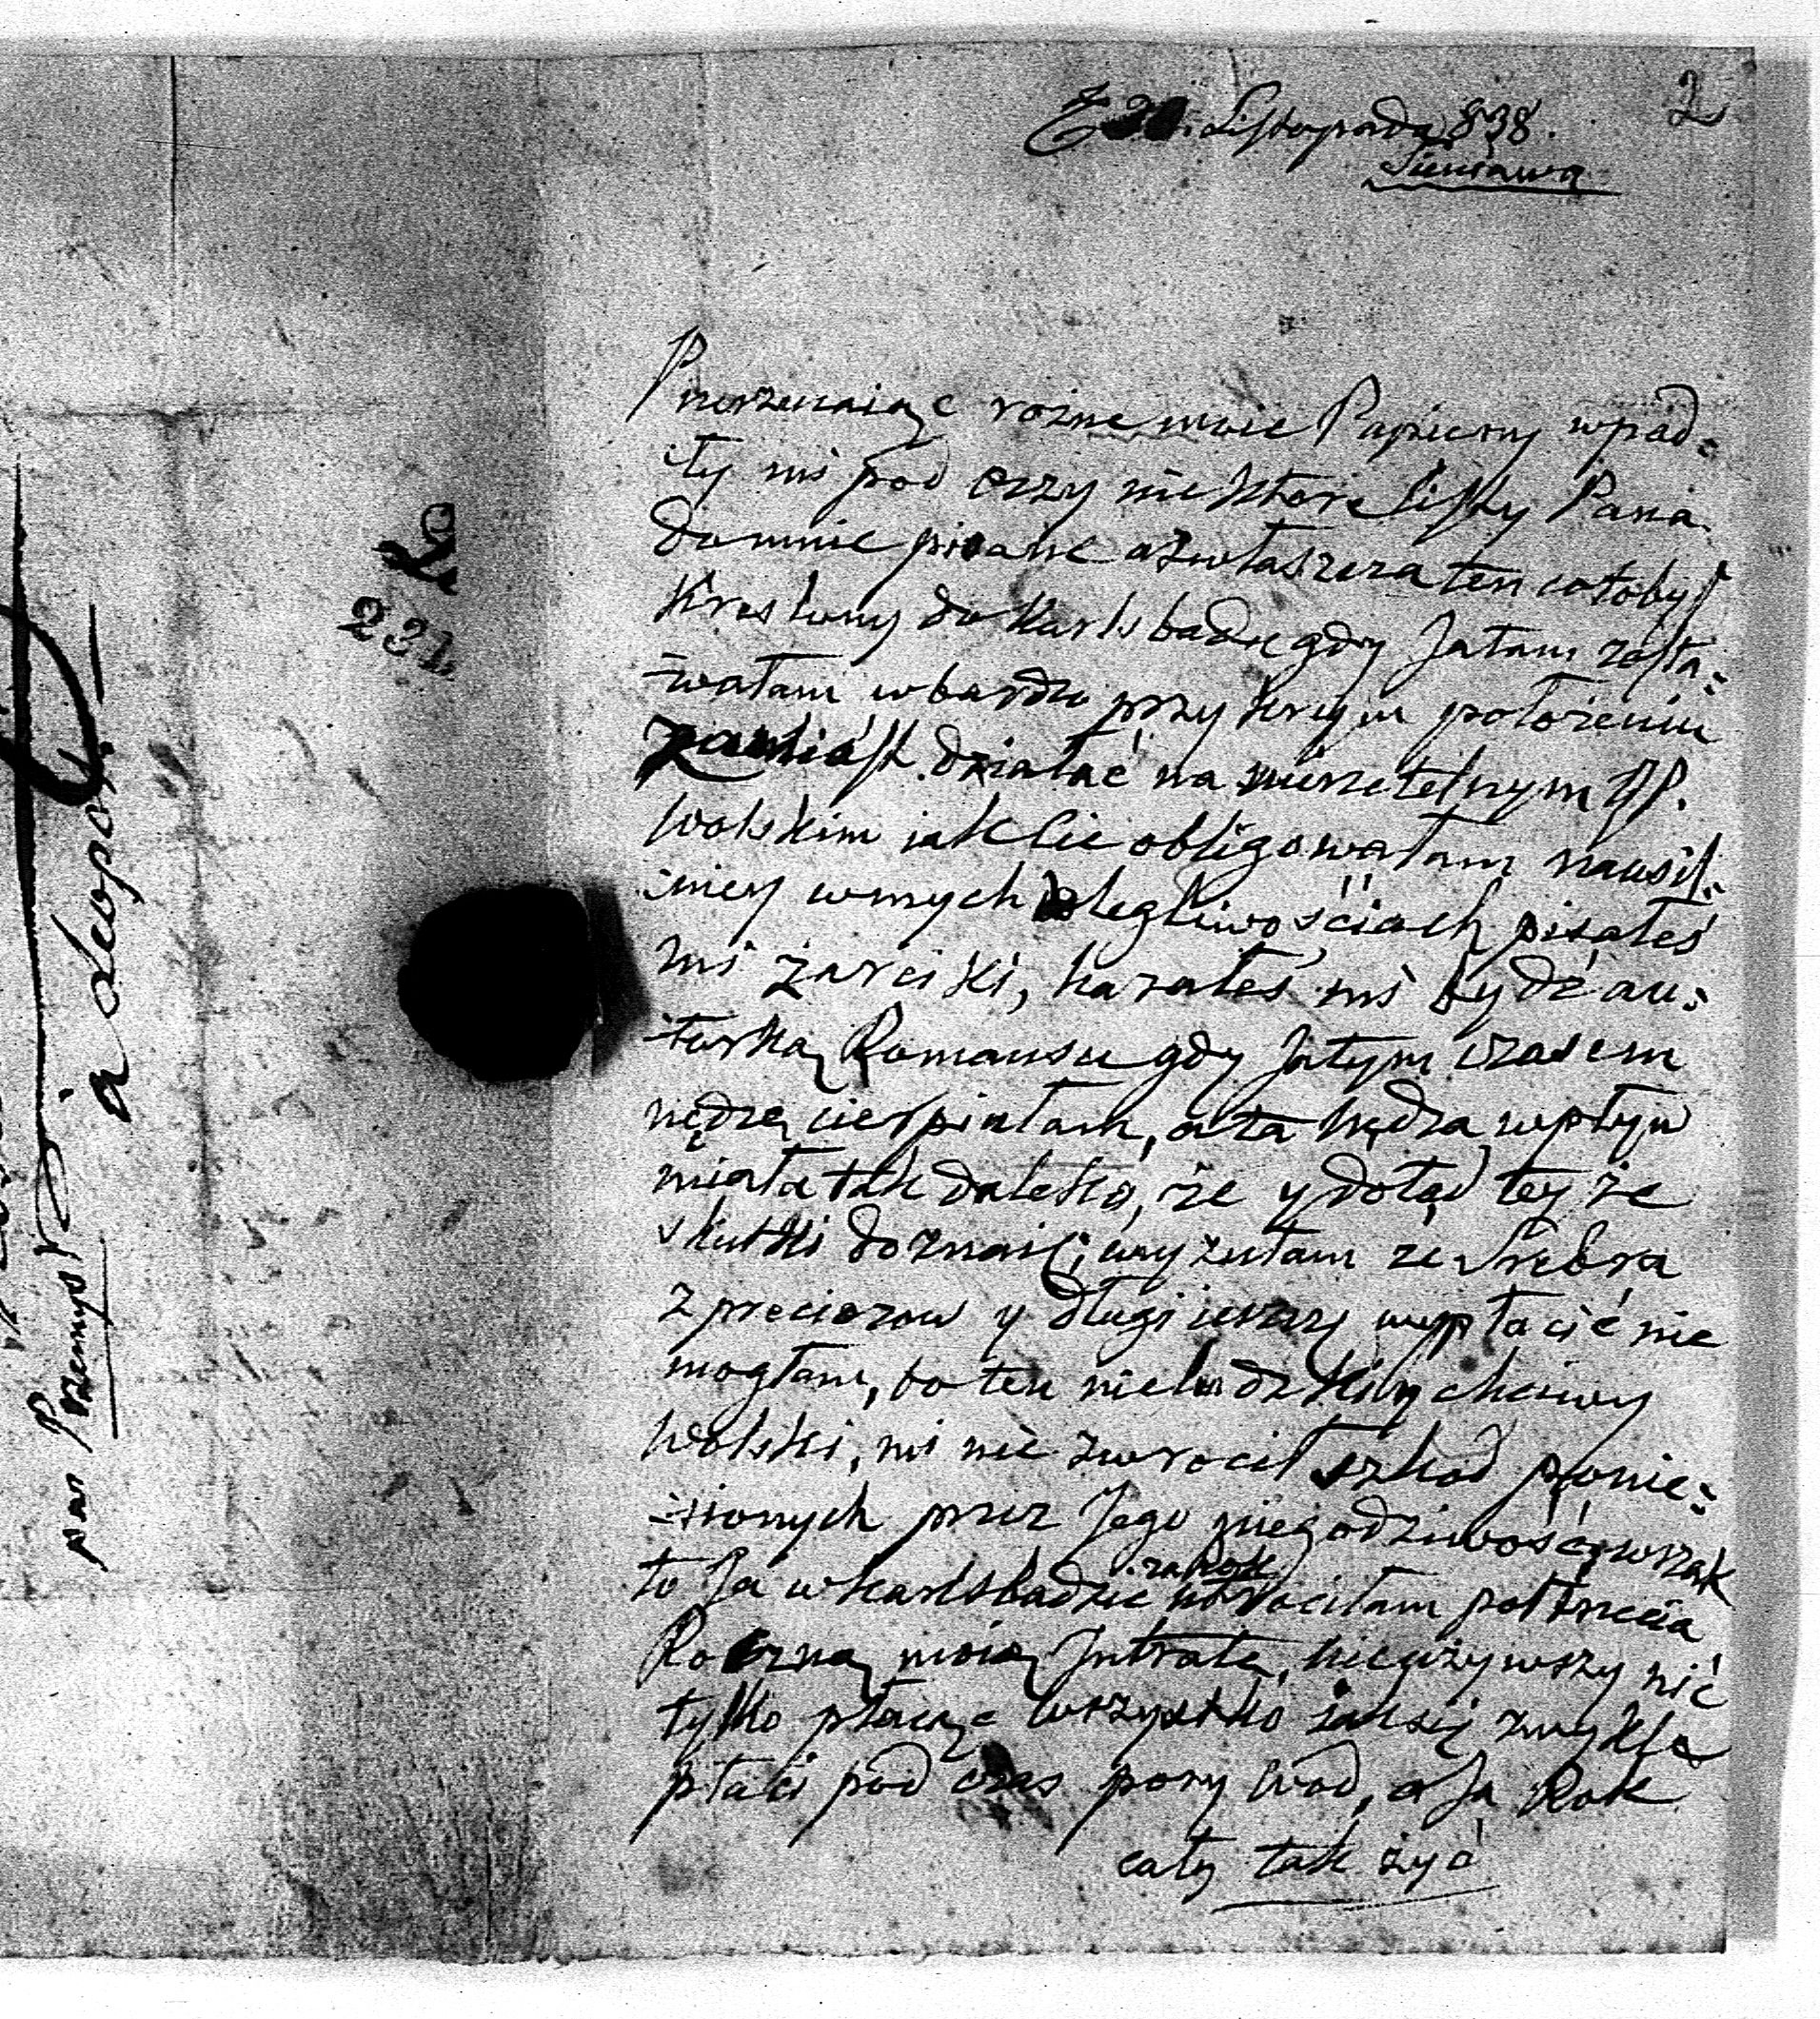 2
Listopada 838.
Sieniawa
Przerzucaiąc rozne moie Papiery wpad=
ły mi pod oczy niektore listy Pana
do mnie pisane a zwłaszcza ten co to był
kreslony do Karlsbadu gdy Ja tam zosta=
=wałam w bardzo przykrym położeniu
zamiast działać na nierzetelnym JP.
Wolskim iak Cie obligowałam nausil=
=niey w mych dolegliwościach pisałeś
mi żarciki, kazałeś mi bydź au=
=torką Romansu gdy Ja tym czasem
nędzę cierpiałam, a ta nędza wpływ
miała tak daleko, że y dotąd tey że
skutki doznaię; wyzułam ze Srebra
z preciozow y długi ieszcze wypłacić nie
mogłam, bo ten nieludzki y chciwy
Wolski, mi nie zwrocił szkod ponie=
=sionych przez Jego niegodziwość, wszak
to Ja w Karlsbadzie za Rok
utraciłam połtrzecia
Roczną moią Intratę, nieużywszy nic
tylko płacąc wszystko iak się zwykle
płaci pod czas pory wod, a Ja Rok
cały tak żyć
L
221
a Leopol.
par Przemysl